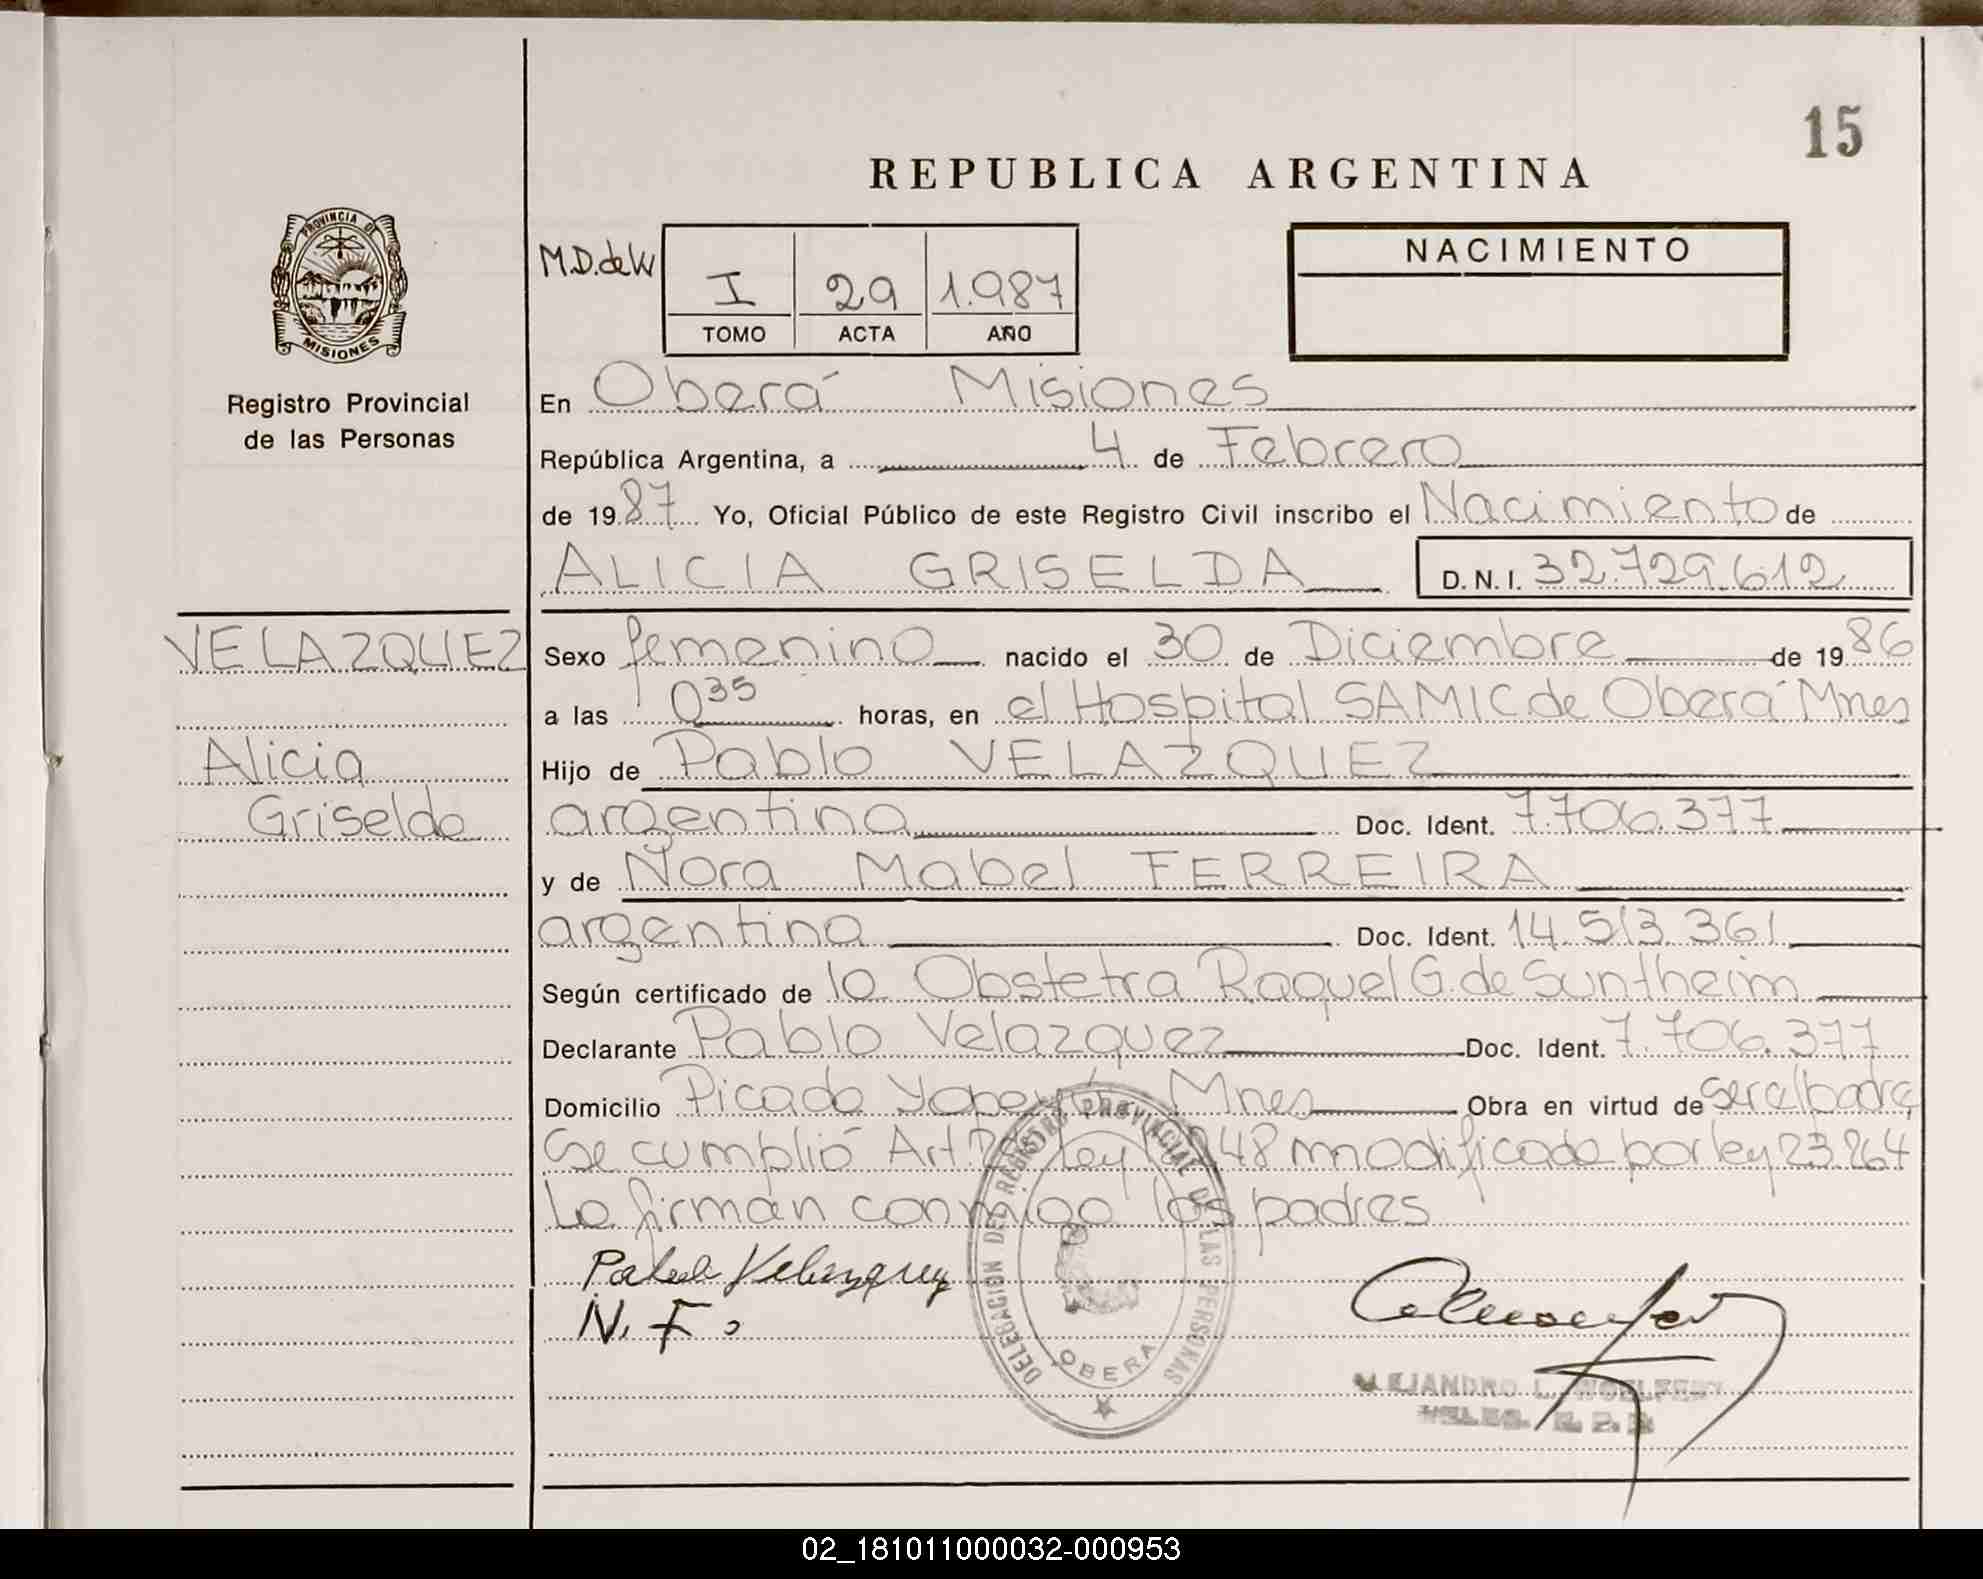 15
REPUBLICA ARGENTINA
PROVINCIA DE
MISIONES
Registro Provincial
de las Personas
M.D.deW
I 29 1.987
TOMO ACTA AÑO
NACIMIENTO
En Oberá Misiones
República Argentina, a 4 de Febrero
de 1987 Yo, Oficial Público de este Registro Civil inscribo el Nacimiento de
ALICIA GRISELDA D.N.I. 32.729.612
VELAZQUEZ
Alicia
Griselda
Sexo femenino nacido el 30 de Diciembre de 1986
a las 0 35 horas, en el Hospital SAMIC de Oberá Mnes
Hijo de Pablo VELAZQUEZ
argentina Doc. Ident. 7.706.377
y de Nora Mabel FERREIRA
argentina Doc. Ident. 14.513.361
Según certificado de la Obstetra Raquel G. de Suntheim
Declarante Pablo Velazquez Doc. Ident. 7.706.377
Domicilio Picada Mnes Obra en virtud de ser el padre
Se cumplió Art. ley 48 modificada por ley 23.264
Lo firman conmigo los padres
Pablo Velazquez
N. F.
DELEGACION DEL REGISTRO PROVINCIAL DE LAS PERSONAS
OBERA
ALEJANDRO L.
02_181011000032-000953